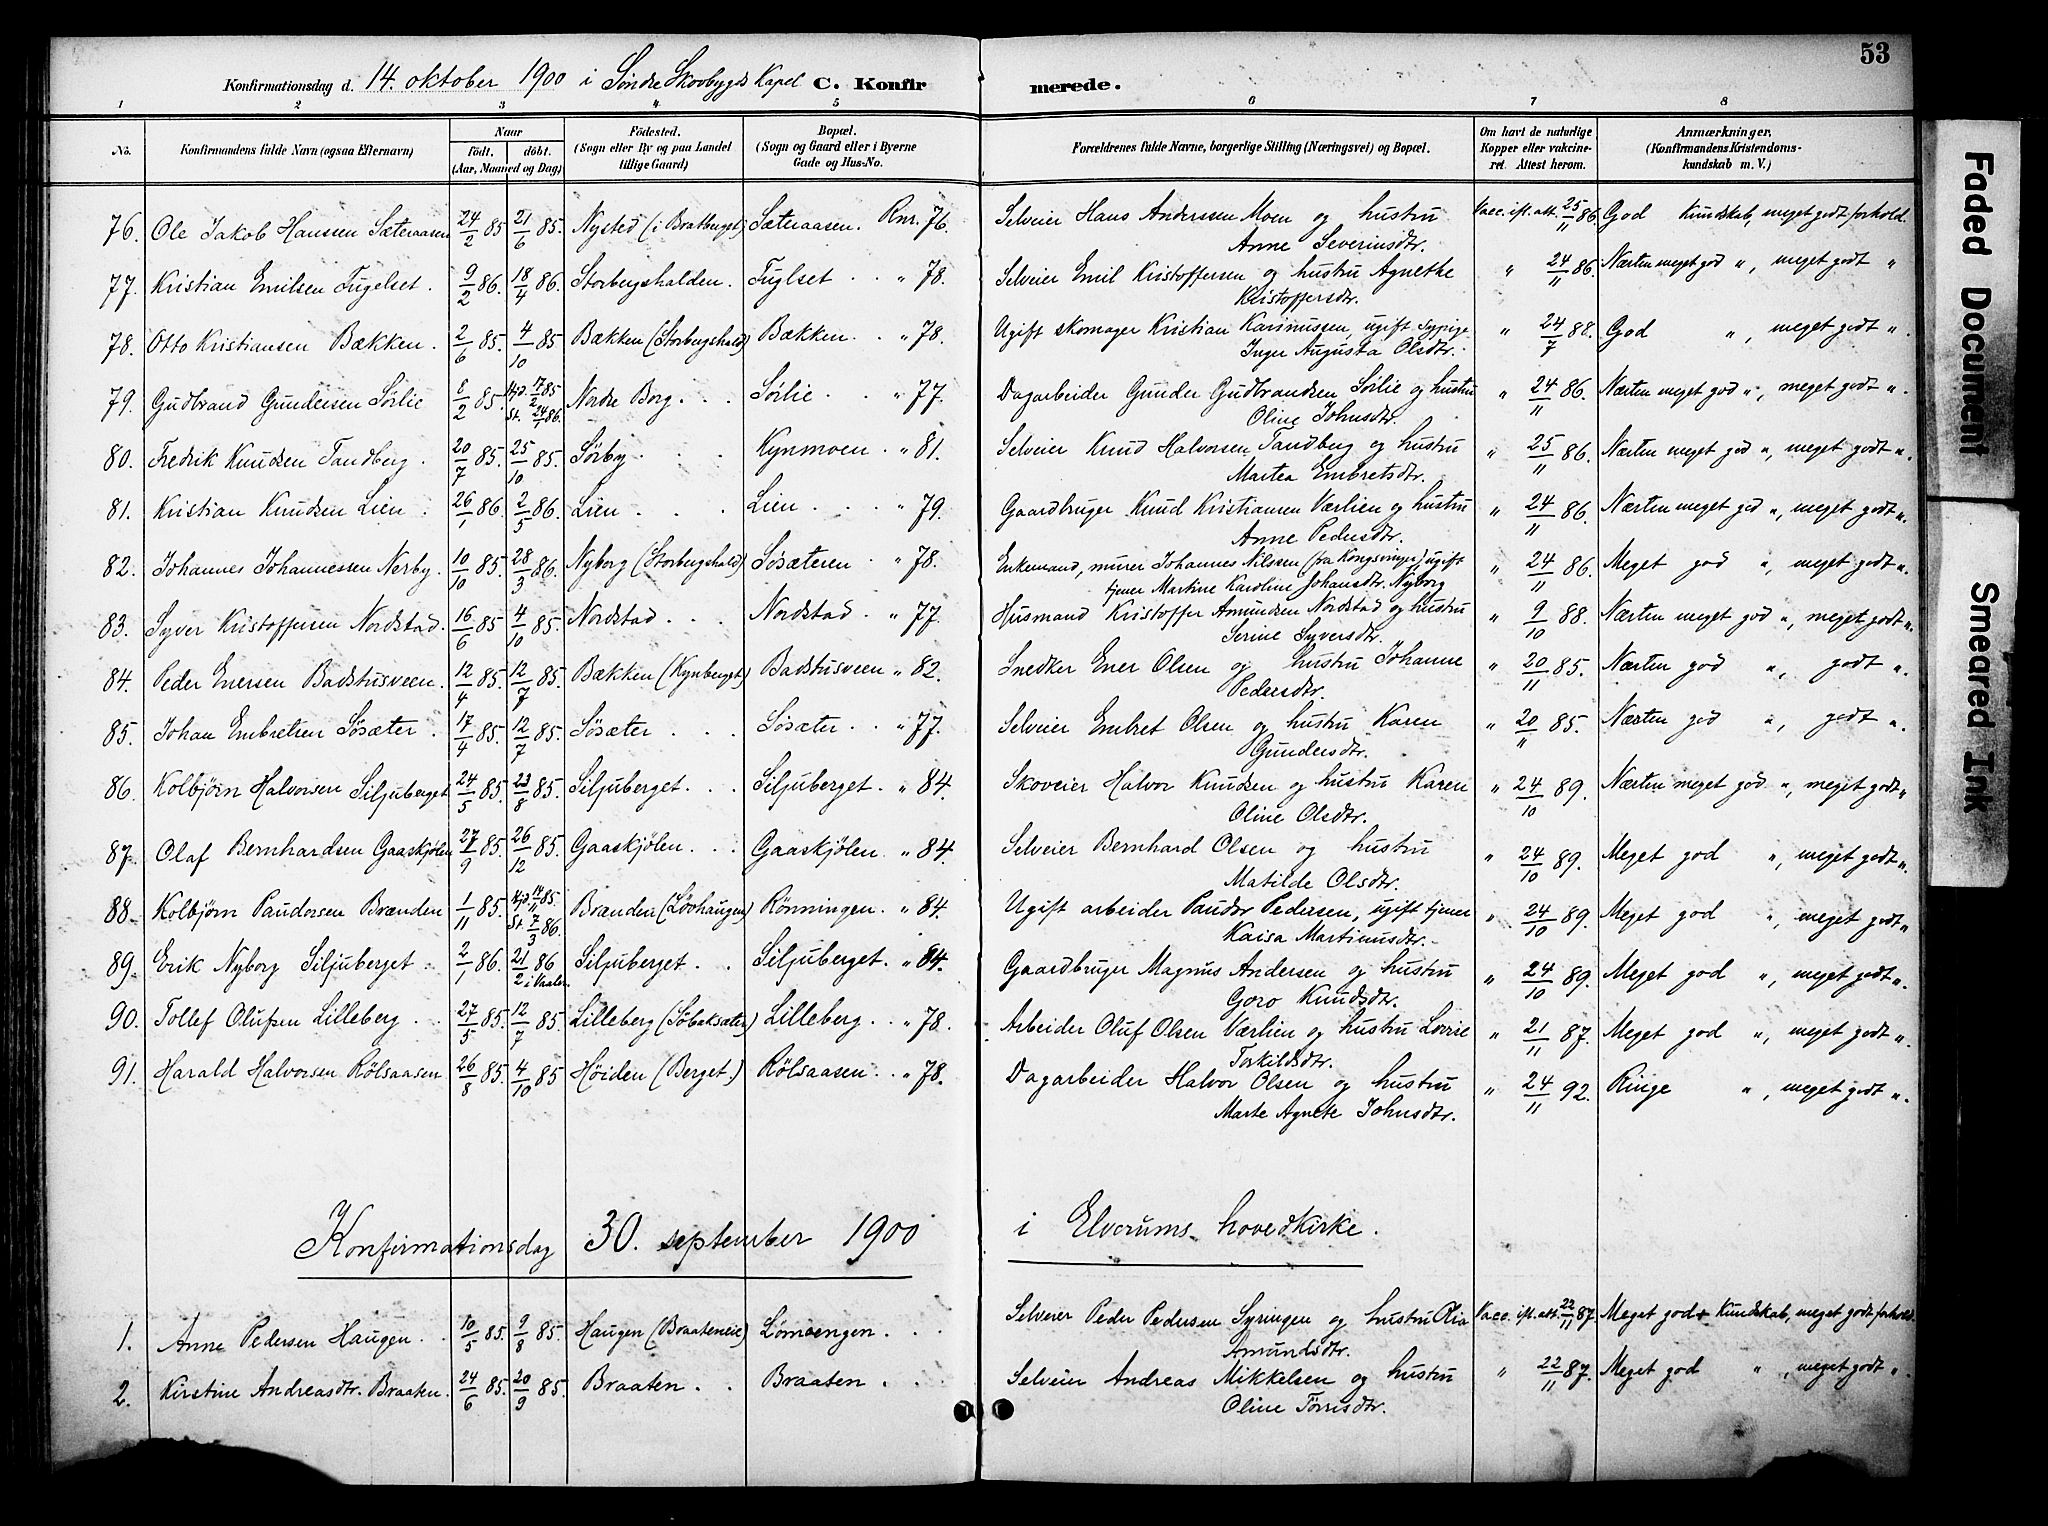 53
Konfirmationsdag d. 14. oktober 1900 i Søndre Skovbygds Kapel C. Konfirmerede.
1 2 3 4 5 6 7 8
No. Konfirmandens fulde Navn (ogsaa Efternavn) Naar födt. döbt. (Aar, Maaned og Dag) Födested. (Sogn eller By og paa Landet tillige Gaard) Bopæl. (Sogn og Gaard eller i Byerne Gade og Hus-No. Forældrenes fulde Navne, borgerlige Stilling (Næringsvei) og Bopæl. Om havt de naturlige Kopper eller vakcineret. Attest herom. Anmærkninger. (Konfirmandens Kristendomskundskab m. V.)
76. Ole Jakob Hanssen Sæteraasen 24/2 85. 21/6 85. Nysted (i Bratberget) Sæteraasen. Rnr. 76. Selveier Hans Anderssen Moen og hustru Anne Severinsdtr. Vacc. ifl. att. 25/11 86. God Kundskab, meget godt forhold.
77. Kristian Emilsen Fugelset. 9/2 86. 18/4 86. Storbergshalden. Fuglset " 78. Selveier Emil Kristoffersen og hustru Agnethe Kristoffersdtr. " 24/11 86. Næsten meget god ", meget godt "
78. Otto Kristiansen Bækken. 2/6 85. 4/10 85 Bækken (Storbergshald) Bækken " 78. Ugift skomager Kristian Karinussen, ugift Sypige Inger Augusta Olsdtr. " 24/7 88. God ", meget godt ".
79. Gudbrand Gundersen Sørlie 8/2 85. Hjd. 17/2 85 St. 24/5 86. Nordre Borg Sørlie " 77. Dagarbeider Gunder Gudbrandsen Sørlie og hustru Oline Johnsdtr. " 24/11 86. Næsten meget god ", meget godt ".
80. Fredrik Knudsen Tandberg. 20/7 85. 25/10 85. Sørby Kynmoen " 81. Selveier Knud Halvorsen Tandberg og hustru Martea Embretsdtr. " 25/11 86. Næsten meget god ", meget godt ".
81. Kristian Knudsen Lien 26/1 86. 2/5 86. Lien Lien " 79. Gaardbruger Knud Kristiansen Værlien og hustru Anne Pedersdtr. " 24/11 86. Næsten meget god ", meget godt ".
82. Johannes Johannessen Nerby. 10/10 85. 28/3 86. Nyborg (Storbergshald) Søsæteren " 78. Enkemand, murer Johannes Nilssen (fra Kongsvinger), ugift tjener Martine Karoline Johansdtr. Nyborg " 24/11 86. Meget god ", meget godt ".
83. Syver Kristoffersen Nordstad. 16/6 85 4/10 85. Nordstad Nordstad " 77. Husmand Kristoffer Amundsen Nordstad og hustru Serine Syversdtr. " 9/10 88. Næsten meget god ", meget godt ".
84. Peder Enersen Badstusveen. 12/4 85. 12/7 85. Bækken (Kynberget) Badstusveen " 82. Snedker Ener Olsen og hustru Johanne Pedersdtr. " 20/11 85. Næsten god ", godt ".
85. Johan Embretsen Søsæter 17/4 85. 12/7 85. Søsæter Søsæter " 77. Selveier Embret Olsen og hustru Karen Gundersdtr. " 20/11 85. Næsten god ", godt ".
86. Kolbjørn Halvorsen Siljuberget 24/5 85. 23/8 85. Siljuberget. Siljuberget " 84. Skoveier Halvor Knudsen og hustru Karen Oline Olsdtr. " 24/10 89. Næsten meget god ", meget godt "
87. Olaf Bernhardsen Gaaskjølen 27/9 85. 26/12 85. Gaaskjølen. Gaaskjølen " 84. Selveier Bernhard Olsen og hustru Matilde Olsdtr. " 24/10 89. Meget god ", meget godt ".
88. Kolbjørn Paudorsen Brænden 1/11 85. Hjd. 14/11 85. St. 7/3 86. Brænden (Løvhaugen) Rønningen " 84. Ugift arbeider Paudor Pedersen, ugift tjener Kaisa Martinusdtr. " 24/10 89. Meget god ", meget godt "
89. Erik Nyborg Siljuberget 2/1 86. 21/2 86 i Vaaler. Siljuberget Siljuberget. " 84. Gaardbruger Magnus Andersen og hustru Goro Knudsdtr. " 24/10 89. Meget god ", meget godt ".
90. Tollef Olufsen Lilleberg 27/5 85. 12/7 85. Lilleberg (Søbaksæter) Lilleberg " 78. Arbeider Oluf Olsen Værlien og hustru Lovise Torkildsdtr. " 21/11 87. Meget god ", meget godt ".
91. Harald Halvorsen Rölsaasen 26/8 85. 4/10 85 Høiden (Berget.) Rölsaasen " 78. Dagarbeider Halvor Olsen og hustru Marte Agnete Johnsdtr. " 24/11 92. Ringe ", meget godt ".
Konfirmationsdag 30. september 1900 i Elverums hovedkirke.
1. Anne Pedersen Haugen 10/5 85. 9/8 85. Haugen (Braateneie) Lømoengen Selveier Peder Pedersen Syringen og hustru Olia Amundsdtr. Vacc. ifl. att. 22/11 87. Meget god Kundskab, meget godt forhold.
2. Kirstine Andreasdtr. Braaten. 24/6 85. 20/9 85. Braaten Braaten Selveier Andreas Mikkelsen og hustru Oline Tørrisdtr. " 22/11 87. Meget god ", meget godt ".
Faded Document
Smeared Ink